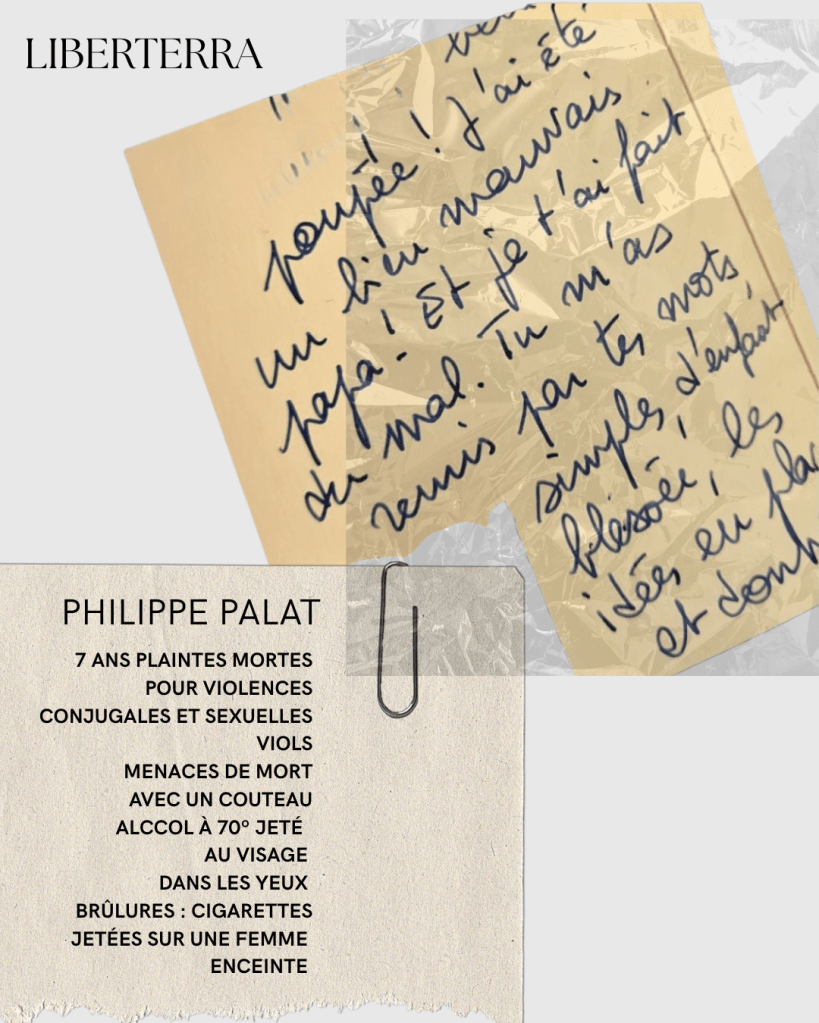 LIBERTERRA
été
poupée ! J'ai
un bien mauvais
papa ! Et je t'ai fait
du mal. Tu m'as
remis par tes mots
simples, d'enfant
blessée, les
idées en
et
PHILIPPE PALAT
7 ANS PLAINTES MORTES
POUR VIOLENCES
CONJUGALES ET SEXUELLES
VIOLS
MENACES DE MORT
AVEC UN COUTEAU
ALCCOL À 70° JETÉ
AU VISAGE
DANS LES YEUX
BRÛLURES : CIGARETTES
JETÉES SUR UNE FEMME
ENCEINTE